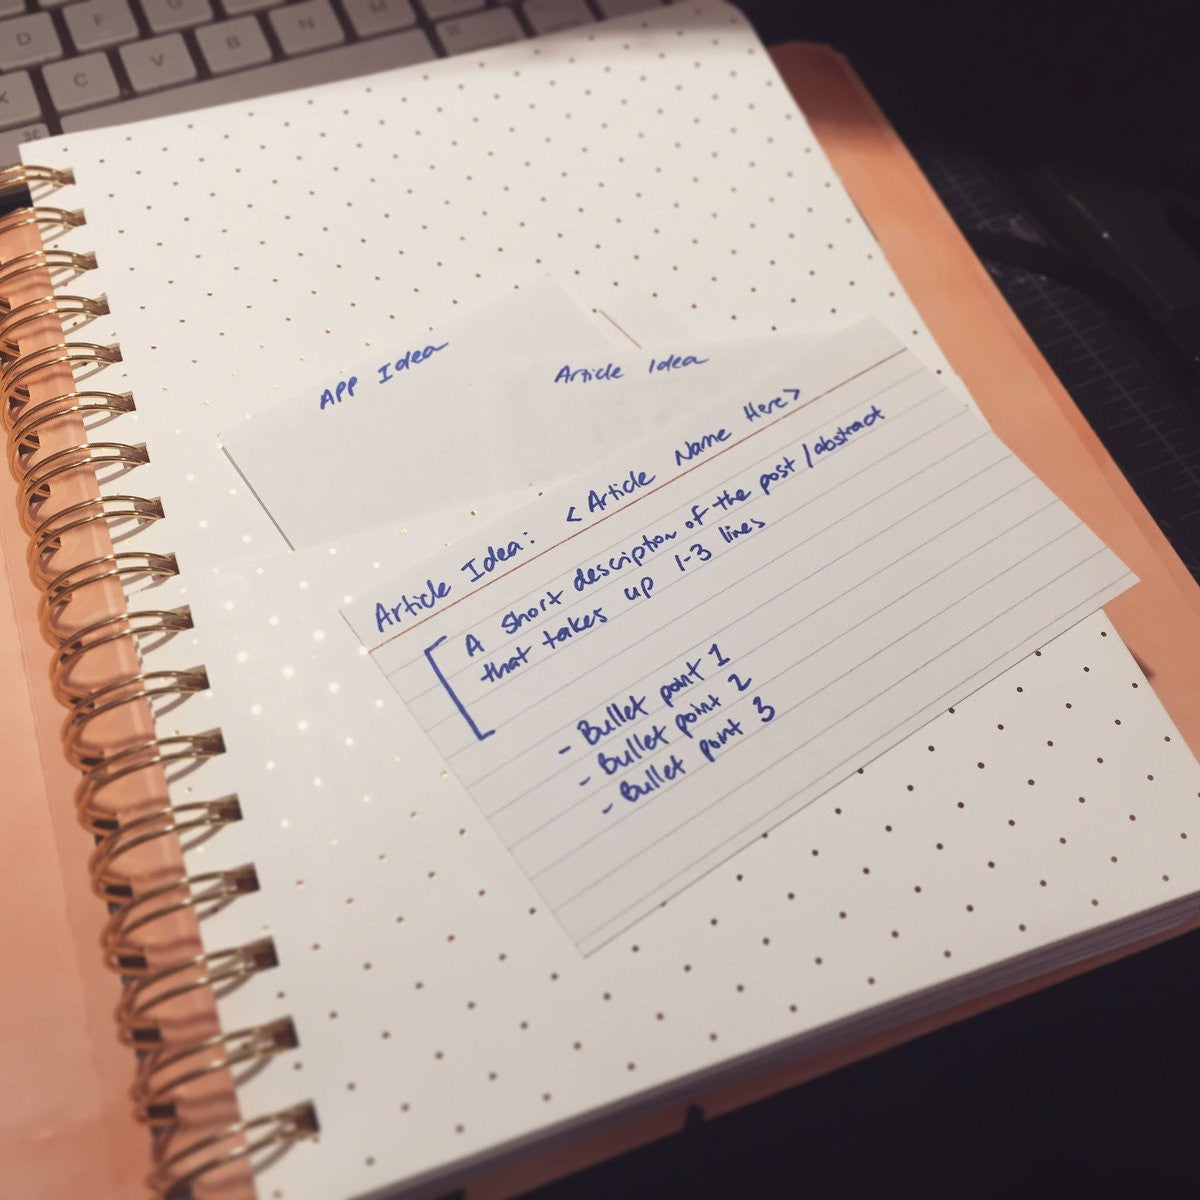 D F G H M
X C V B N
⌘
APP Idea
Article Idea
Article Idea: < Article Name Here>
A short description of the post/abstract
that takes up 1-3 lines
- Bullet point 1
- Bullet point 2
- Bullet point 3